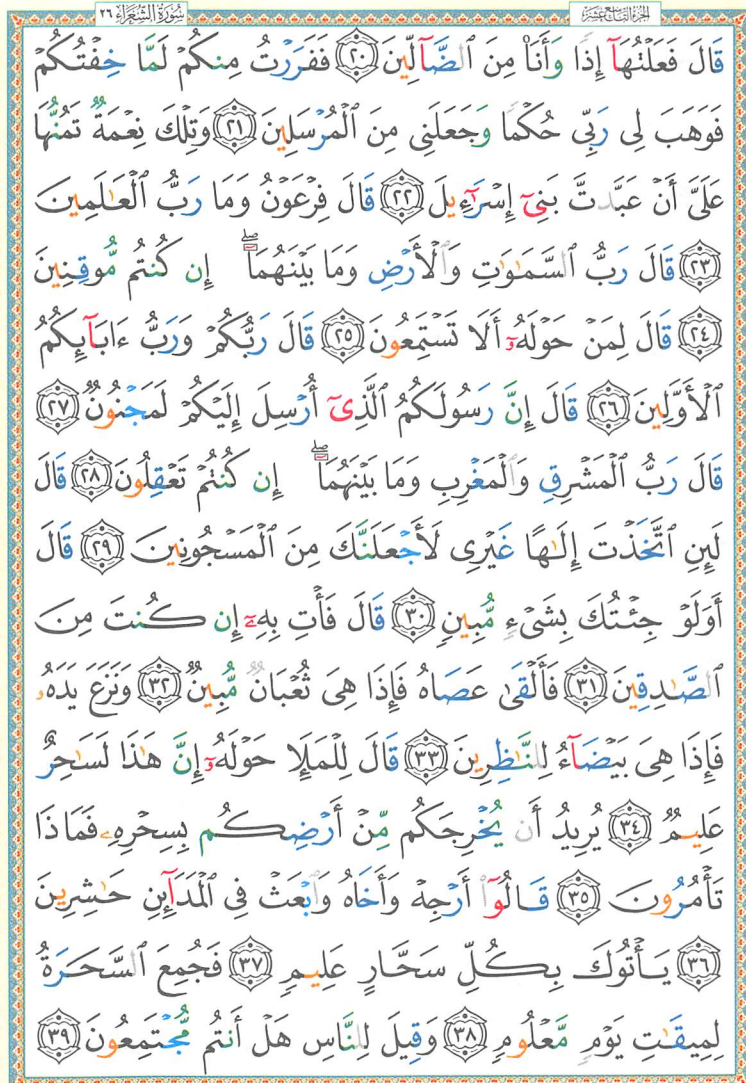 سُورَةُ الشُّعَرَاءِ ٢٦
الجُزْءُ التَّاسِعَ عَشَرَ
قَالَ فَعَلْتُهَآ إِذًا وَأَنَا۠ مِنَ ٱلضَّآلِّينَ ٢٠ فَفَرَرْتُ مِنكُمْ لَمَّا خِفْتُكُمْ
فَوَهَبَ لِى رَبِّى حُكْمًا وَجَعَلَنِى مِنَ ٱلْمُرْسَلِينَ ٢١ وَتِلْكَ نِعْمَةٌ تَمُنُّهَا
عَلَىَّ أَنْ عَبَّدتَّ بَنِىٓ إِسْرَٰٓءِيلَ ٢٢ قَالَ فِرْعَوْنُ وَمَا رَبُّ ٱلْعَٰلَمِينَ
٢٣ قَالَ رَبُّ ٱلسَّمَٰوَٰتِ وَٱلْأَرْضِ وَمَا بَيْنَهُمَآ ۖ إِن كُنتُم مُّوقِنِينَ
٢٤ قَالَ لِمَنْ حَوْلَهُۥٓ أَلَا تَسْتَمِعُونَ ٢٥ قَالَ رَبُّكُمْ وَرَبُّ ءَابَآئِكُمُ
ٱلْأَوَّلِينَ ٢٦ قَالَ إِنَّ رَسُولَكُمُ ٱلَّذِىٓ أُرْسِلَ إِلَيْكُمْ لَمَجْنُونٌ ٢٧
قَالَ رَبُّ ٱلْمَشْرِقِ وَٱلْمَغْرِبِ وَمَا بَيْنَهُمَآ ۖ إِن كُنتُمْ تَعْقِلُونَ ٢٨ قَالَ
لَئِنِ ٱتَّخَذْتَ إِلَٰهًا غَيْرِى لَأَجْعَلَنَّكَ مِنَ ٱلْمَسْجُونِينَ ٢٩ قَالَ
أَوَلَوْ جِئْتُكَ بِشَىْءٍ مُّبِينٍ ٣٠ قَالَ فَأْتِ بِهِۦٓ إِن كُنتَ مِنَ
ٱلصَّٰدِقِينَ ٣١ فَأَلْقَىٰ عَصَاهُ فَإِذَا هِىَ ثُعْبَانٌ مُّبِينٌ ٣٢ وَنَزَعَ يَدَهُۥ
فَإِذَا هِىَ بَيْضَآءُ لِلنَّٰظِرِينَ ٣٣ قَالَ لِلْمَلَإِ حَوْلَهُۥٓ إِنَّ هَٰذَا لَسَٰحِرٌ
عَلِيمٌ ٣٤ يُرِيدُ أَن يُخْرِجَكُم مِّنْ أَرْضِكُم بِسِحْرِهِۦ فَمَاذَا
تَأْمُرُونَ ٣٥ قَالُوٓا۟ أَرْجِهْ وَأَخَاهُ وَٱبْعَثْ فِى ٱلْمَدَآئِنِ حَٰشِرِينَ
٣٦ يَأْتُوكَ بِكُلِّ سَحَّارٍ عَلِيمٍ ٣٧ فَجُمِعَ ٱلسَّحَرَةُ
لِمِيقَٰتِ يَوْمٍ مَّعْلُومٍ ٣٨ وَقِيلَ لِلنَّاسِ هَلْ أَنتُم مُّجْتَمِعُونَ ٣٩